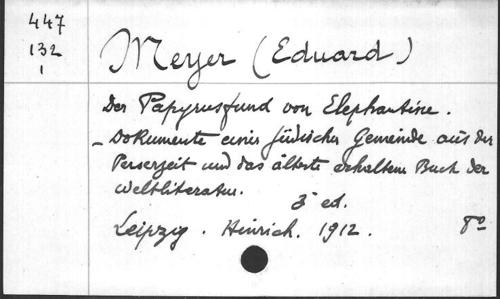 447
132
1
Meyer (Eduard)
Der Papyrusfund von Elephantine.
- Dokumente einer jüdischen Gemeinde aus der
Perserzeit und das älteste erhaltene Buch der
Weltliteratur.
3ª ed.
Leipzig. Hinrich. 1912. 8º